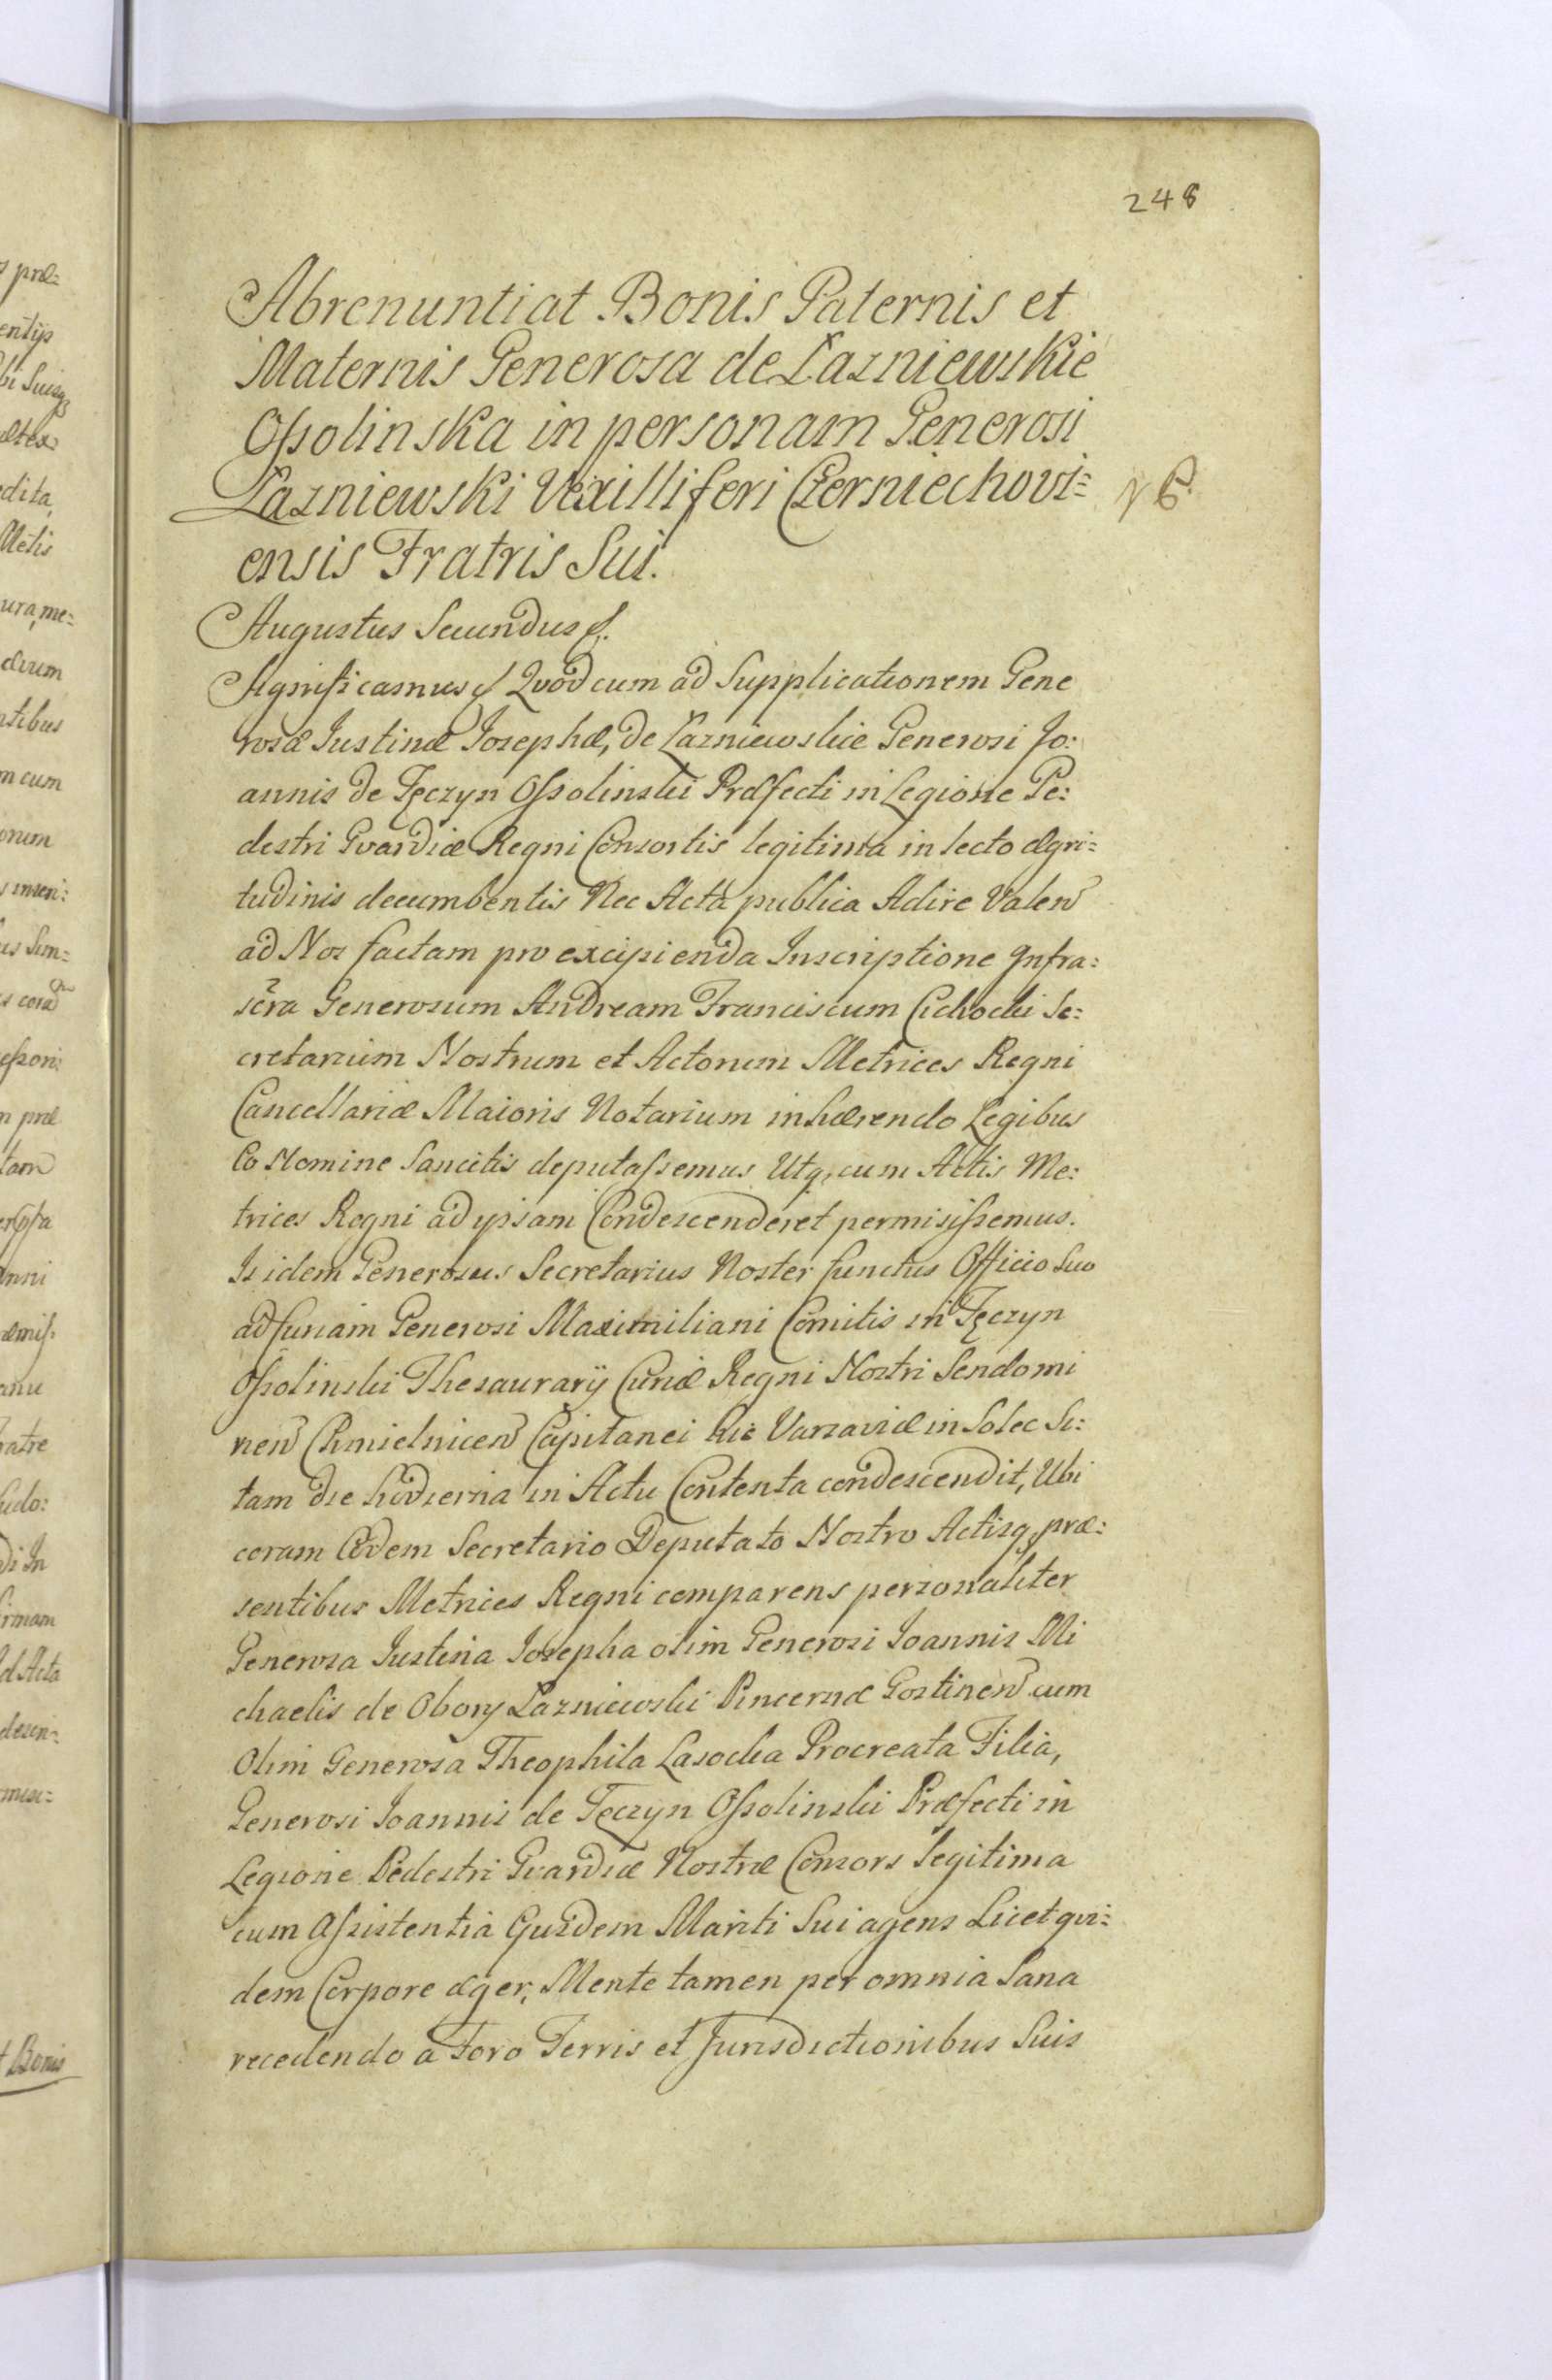 248
Abrenuntiat Bonis Paternis et
Maternis Generosa de Łazniewskie
Ossolinska in personam Generosi
Łazniewski Vexilliferi Czerniechovi= N 6.
ensis Fratris Sui.
Augustus Secundus
Significamus Quod cum ad Supplicationem Gene
rosæ Iustinæ Iosephæ, de Łazniewskie Generosi Jo:
annis de Tęczyn Ossolinski Præfecti in Legione Pe:
destri Gvardiæ Regni Consortis legitima in lecto ægri=
tudinis decumbentis Nec Acta publica Adire Valen
ad Nos factam pro excipienda Inscriptione Infra=
scra Generosum Andream Franciscum Cichocki Se:
cretarium Nostrum et Actorum Metrices Regni
Cancellariæ Maioris Notarium inhærendo Legibus
Eo Nomine Sancitis deputassemus Utq, cum Actis Me:
trices Regni ad ipsam Condescenderet permisissemus.
Is idem Generosus Secretarius Noster functus Officio Suo
ad Curiam Generosi Maximiliani Comitis in Tęczyn
Ossolinski Thesaurarij Curiæ Regni Nostri Sendomi
rien Chmielnicen Capitanei hic Varsaviæ in Solec Si:
tam die hodierna in Actu Contenta condescendit, Ubi
coram Eodem Secretario Deputato Nostro Actisq, præ:
sentibus Metrices Regni comparens personaliter
Generosa Iustina Iosepha olim Generosi Ioannis Mi
chaelis de Obory Łazniewski Pincernæ Gostinen cum
Olim Generosa Theophila Lasocka Procreata Filia,
Generosi Ioannis de Tęczyn Ossolinski Præfecti in
Legione Pedestri Gvardiæ Nostræ Consors legitima
cum Assistentia Eiusdem Mariti Sui agens Licet qvi=
dem Corpore æger, Mente tamen per omnia Sana
recedendo a Foro Terris et Jurisdictionibus Suis